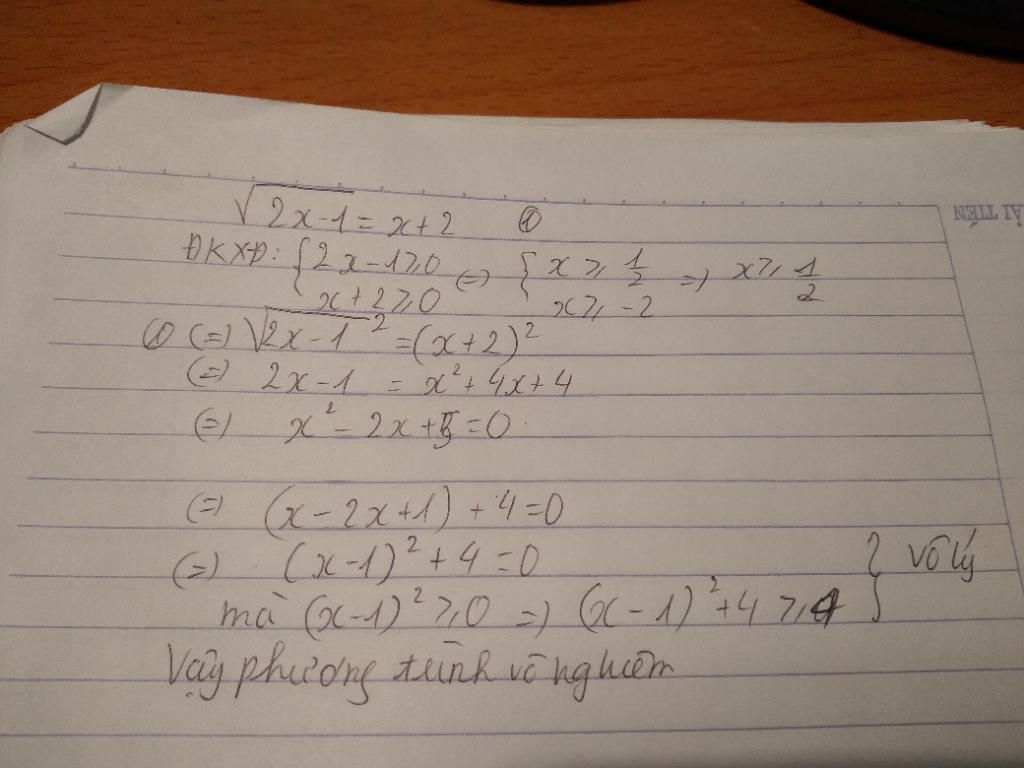 √2x-1 = x+2 ①
ĐKXĐ: { 2x-1 ≥ 0 (=) { x ≥ 1/2 =) x ≥ 1/2
x+2 ≥ 0 x ≥ -2
① (=) √2x-1² = (x+2)²
(=) 2x-1 = x²+4x+4
(=) x²-2x+5=0
(=) (x-2x+1)+4=0
(=) (x-1)²+4=0
mà (x-1)² ≥ 0 =) (x-1)²+4 ≥ 4 } vô lý
Vậy phương trình vô nghiệm
ẢI TIẾN